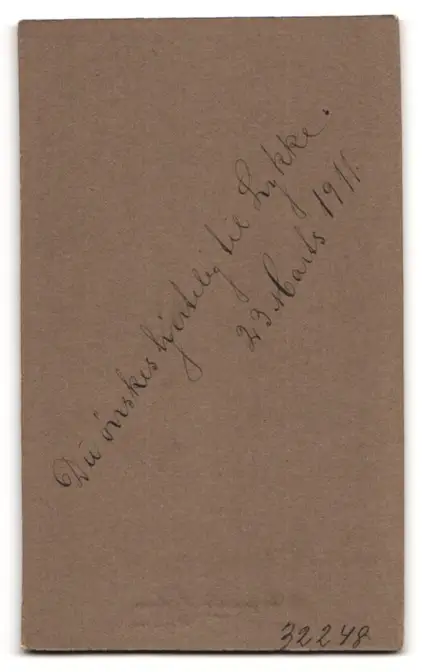 Du ønskes hjertelig til Lykke.
23 Marts 1911.
32248